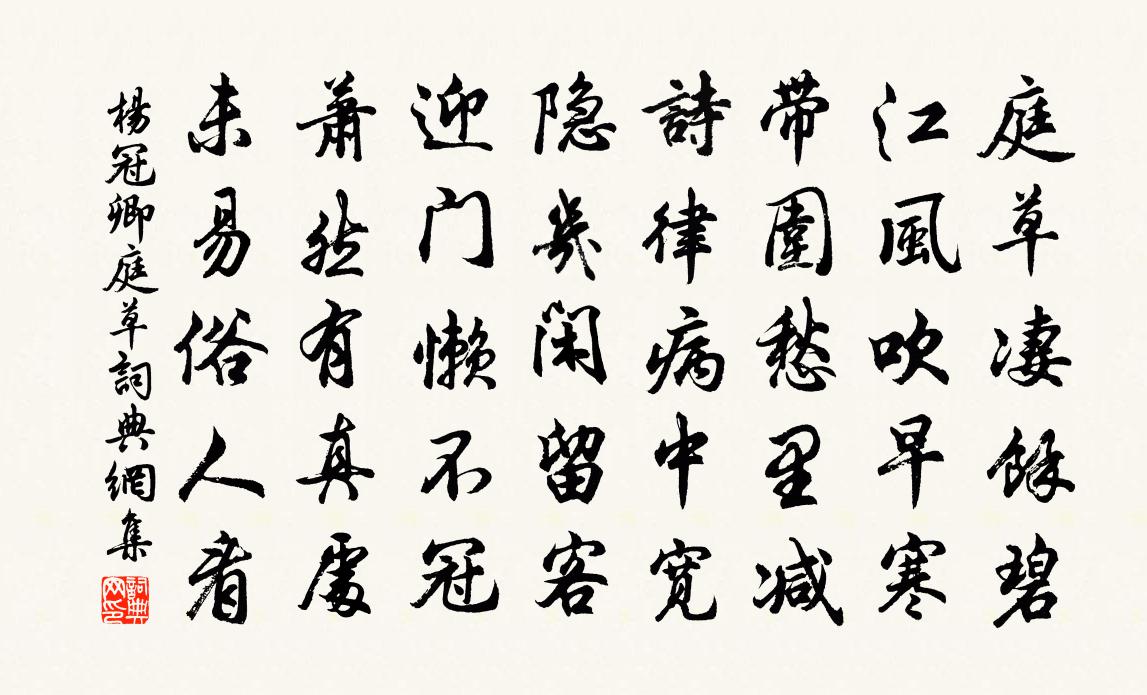 庭草淒餘碧
江風吹早寒
帶圍愁里减
詩律病中寬
隐几闲留客
迎门懒不冠
蕭然有真處
未易俗人看
楊冠卿庭草詞典網集
詞典网印